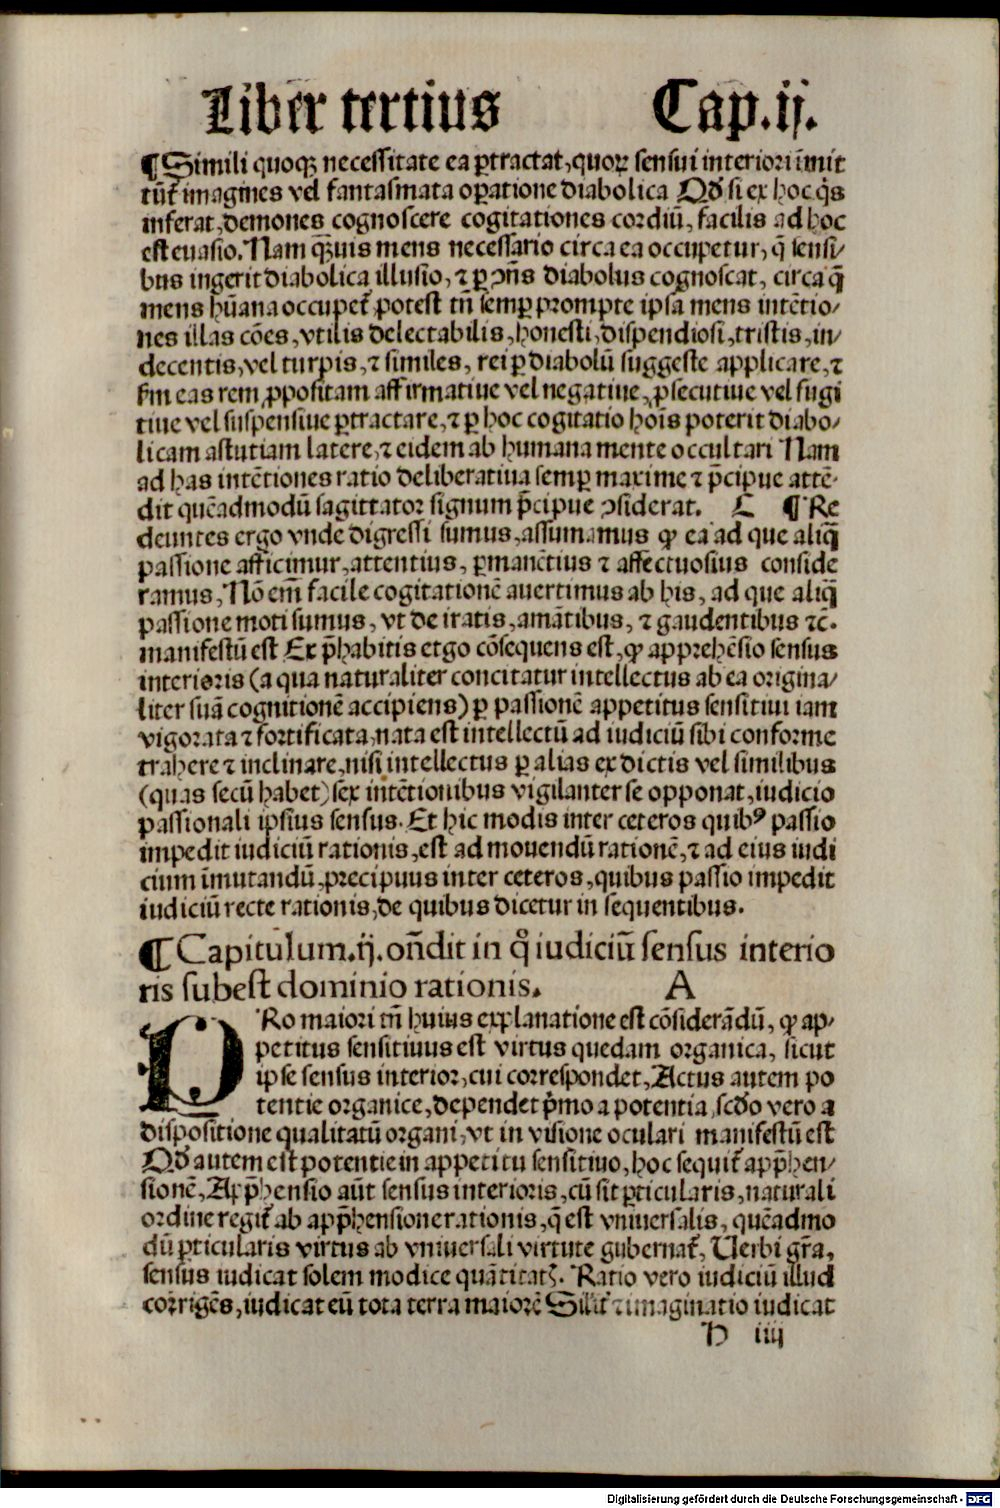 Liber tertius Cap.ij.
¶Simili quoqꝫ necessitate ea ꝑtractat,quoꝝ sensui interiori īmit
tūt᷑ imagines vel fantasmata oꝑatione diabolica Qd̕ si ex hoc q̇s
inferat,demones cognoscere cogitationes cordiū, facilis ad hoc
est euasio.Nam q̄ꝫuis mens necessario circa ea occupetur, q̄ sensi⸗
bus ingerit diabolica illusio, ⁊ ꝑ ꝯn̄s diabolus cognoscat, circa q̄
mens hūana occupet᷑ potest tn̄ semꝑ prompte ipsa mens intētio⸗
nes illas cōes,vtilis delectabilis,honesti,dispendiosi,tristis,in⸗
decentis,vel turpis,⁊ similes, rei ꝑ diabolū suggeste applicare,⁊
ẜm eas rem ꝓpositam affirmatiue vel negatiue, ꝓsecutiue vel fugi
tiue vel suspensiue ꝑtractare,⁊ ꝑ hoc cogitatio hoīs poterit diabo⸗
licam astutiam latere,⁊ eidem ab humana mente occultari Nam
ad has intētiones ratio deliberatiua semꝑ maxime ⁊ p̄cipue attē⸗
dit quēadmodū sagittator signum p̄cipue ꝯsiderat. C ¶Re
deuntes ergo vnde digressi sumus,assumamus ꝙ ea ad que aliq̄
passione afficimur,attentius, ꝑmanētius ⁊ affectuosius conside
ramus, Nō em̄ facile cogitationē auertimus ab his, ad que aliq̄
passione moti sumus, vt de iratis,amātibus, ⁊ gaudentibus ⁊c̄.
manifestū est Ex p̄habitis etgo cōsequens est,ꝙ apprehēsio sensus
interioris (a qua naturaliter concitatur intellectus ab ea origina⸗
liter suā cognitionē accipiens) ꝑ passionē appetitus sensitiui iam
vigorata ⁊ fortificata,nata est intellectū ad iudiciū sibi conforme
trahere ⁊ inclinare,nisi intellectus ꝑ alias ex dictis vel similibus
(quas secū habet) sex intētionibus vigilanter se opponat,iudicio
passionali ipsius sensus. Et hic modis inter ceteros quibꝰ passio
impedit iudiciū rationis,est ad mouendū rationē,⁊ ad eius iudi
cium īmutandū,precipuus inter ceteros,quibus passio impedit
iudiciū recte rationis,de quibus dicetur in sequentibus.
¶Capitulum.ij.on̄dit in q̊ iudiciū sensus interio
ris subest dominio rationis. A
PRo maiori tn̄ huius explanatione est cōsiderādū, ꝙ ap⸗
petitus sensitiuus est virtus quedam organica, sicut
ipse sensus interior,cui correspondet,Actus autem po
tentie organice,dependet p̄mo a potentia,sed̕o vero a
dispositione qualitatū organi,vt in visione oculari manifestū est
Qd̕ autem est potentie in appetitu sensitiuo,hoc sequit᷑ app̄hen⸗
sionē,App̄hensio aūt sensus interioris,cū sit ꝑticularis,naturali
ordine regit᷑ ab app̄hensione rationis,q̄ est vniuersalis, quēadmo
dū ꝑticularis virtus ab vniuersali virtute gubernat᷑, Uerbi gr̄a,
sensus iudicat solem modice quātitatꝭ. Ratio vero iudiciū illud
corrigēs,iudicat eū tota terra maiorē Silit᷑ ⁊ imaginatio iudicat
h iiij
Digitalisierung gefördert durch die Deutsche Forschungsgemeinschaft - DFG